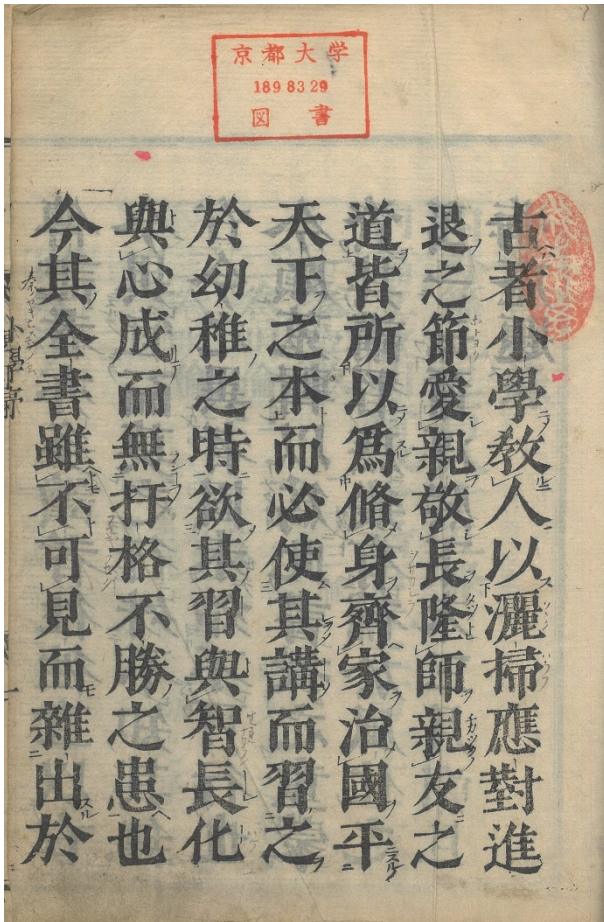 京都大学
1898329
図書
古者小學教人以灑掃應對進
退之節愛親敬長隆師親友之
道皆所以爲脩身齊家治國平
天下之本而必使其講而習之
於幼稚之時欲其習與智長化
與心成而無扞格不勝之患也
今其全書雖不可見而雜出於